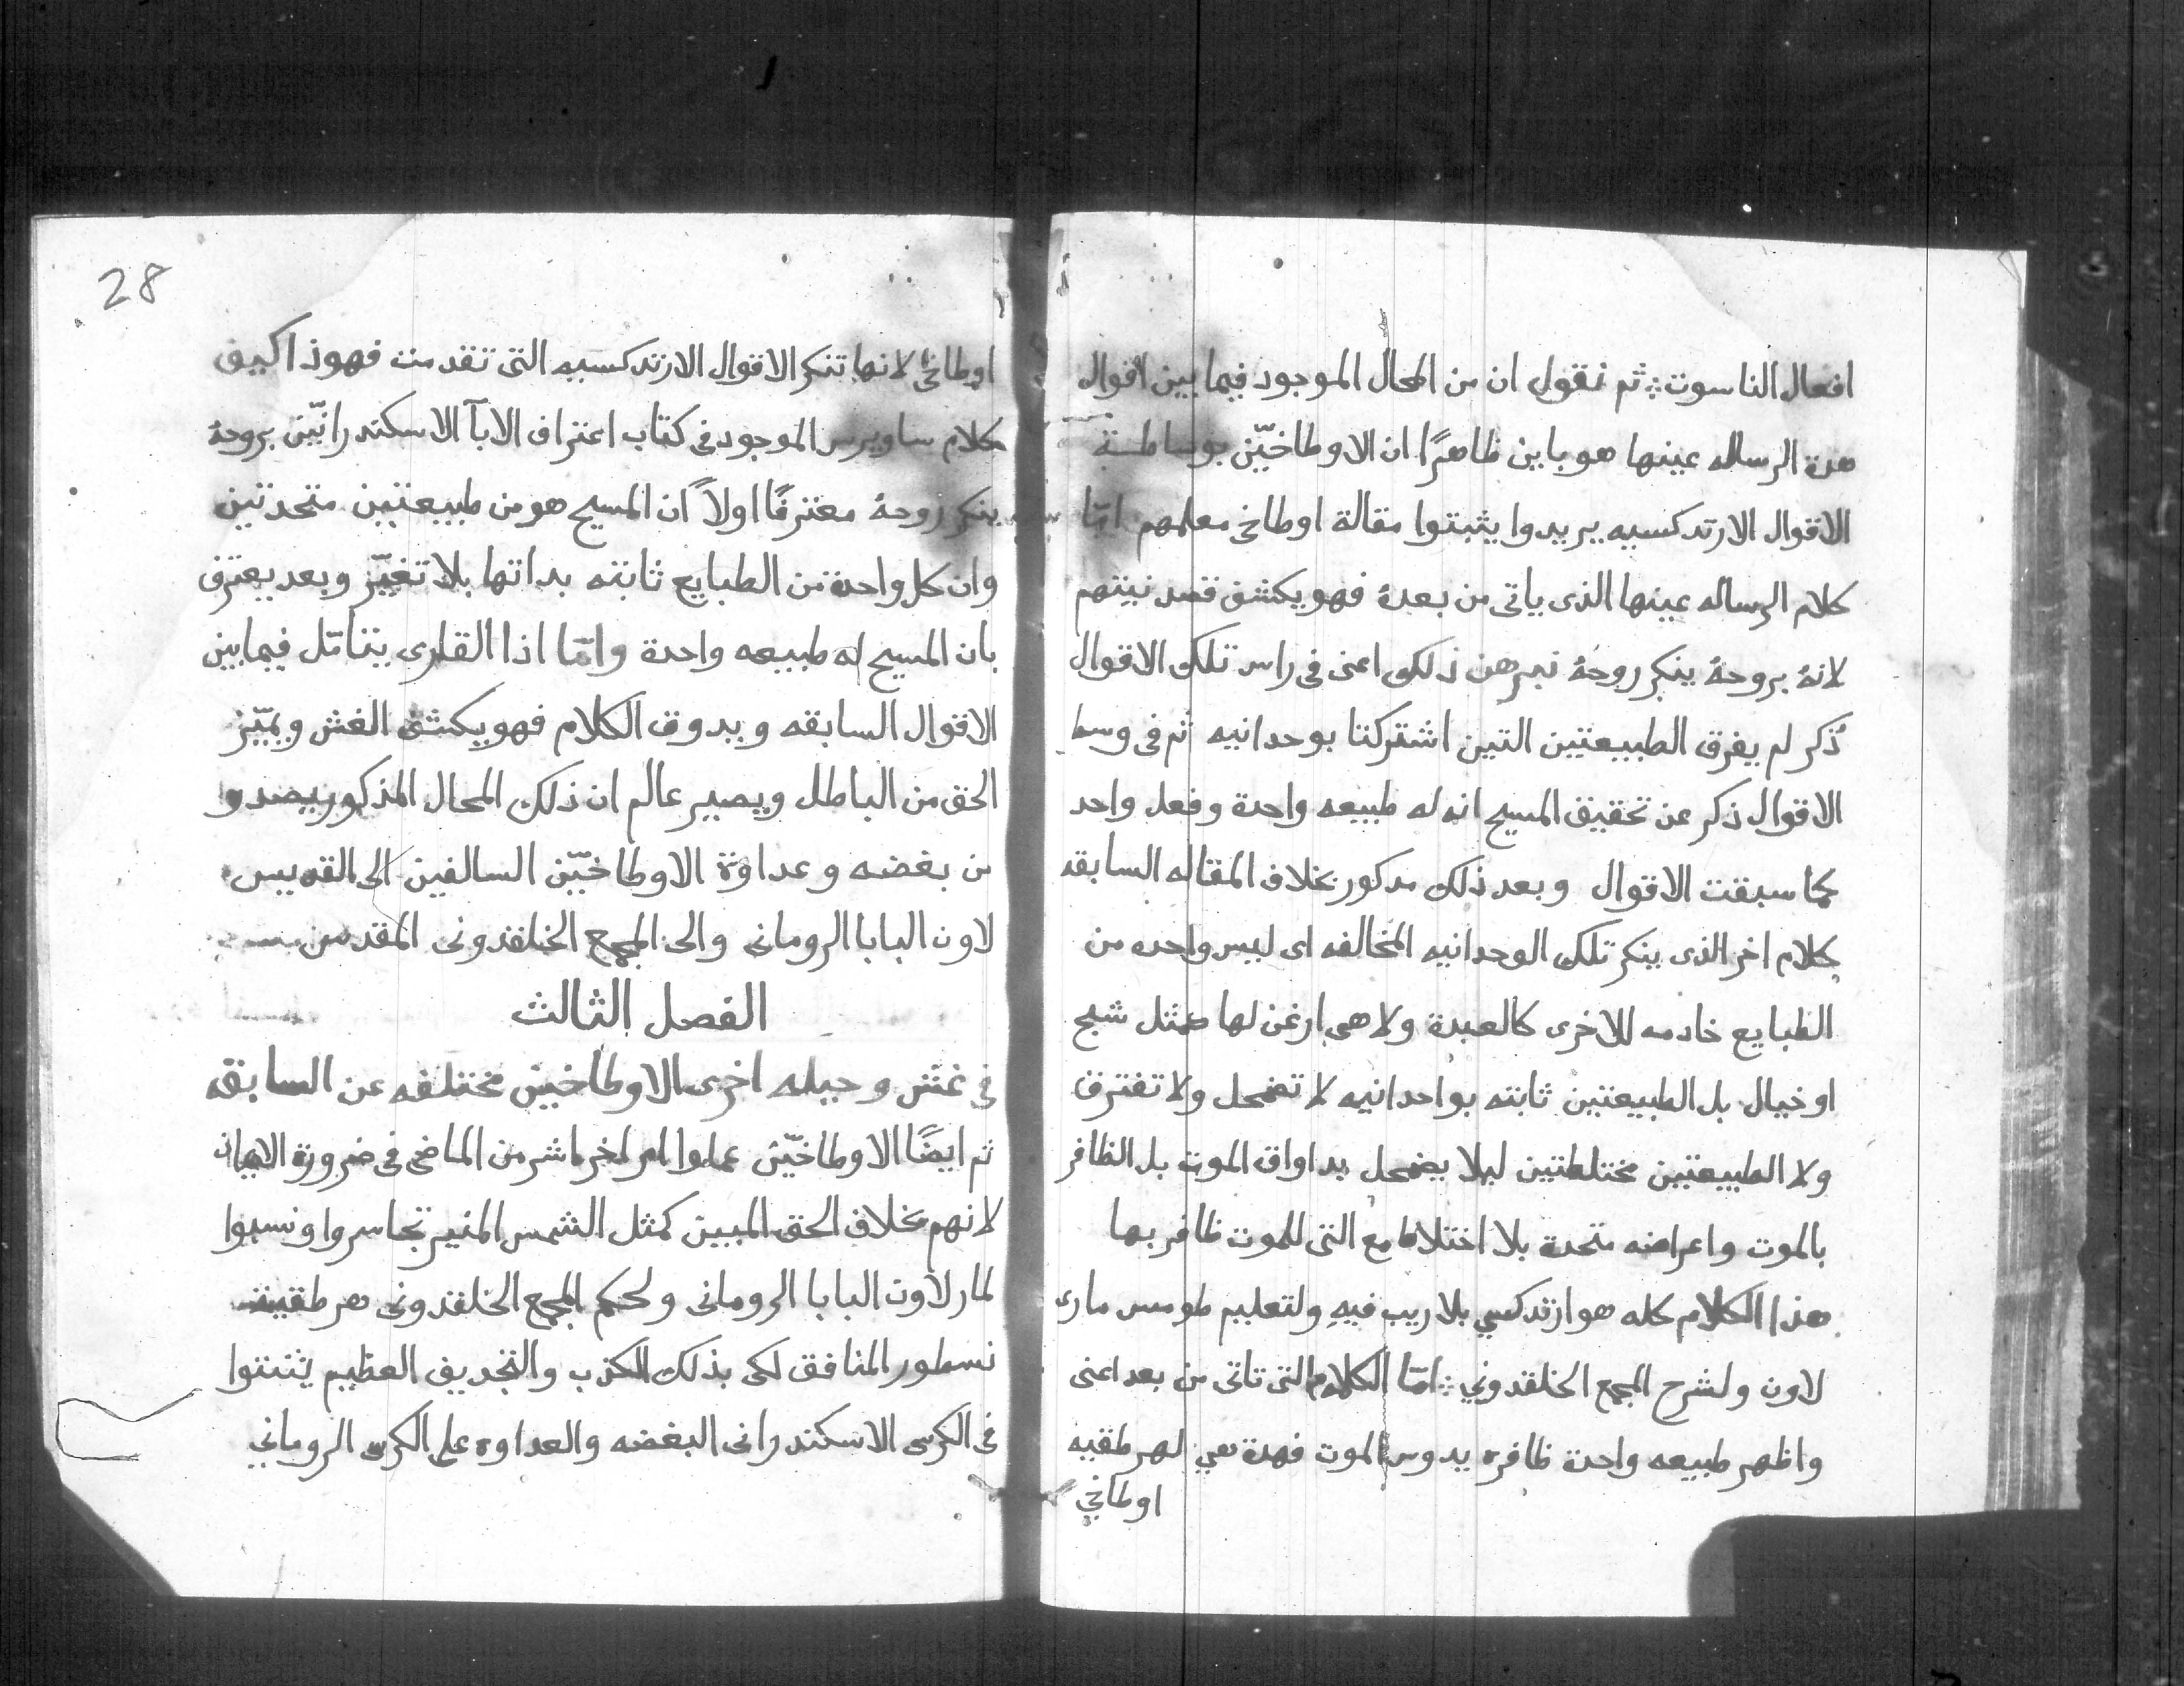 افعال الناسوت ثم نقول ان من المحال الموجود فيما بين اقوال
هدة الرساله عينها هو باين ظاهرًا ان الاوطاخيّين بوساطة
الاقوال الارتدكسيه يريدوا يثبتوا مقالة اوطاخي معلمهم امّا
كلام الرساله عينها الذى ياتى من بعدهٔ فهو يكشف قصد نيتهم
لانهٔ بروحهٔ ينكر روحهٔ نبرهن ذلك اعنى فى راس تلك الاقوال
ذكر لم يفرق الطبيعتين التين اشتركتا بوحدانيه ثم فى وسط
الاقوال ذكر عن تحقيق المسيح انه له طبيعه واحدة وفعل واحد
كما سبقت الاقوال وبعد ذلك مدكور بخلاف المقاله السابقه
كلام اخر الذى ينكر تلك الوحدانيه المخالفه اى ليس واحده من
الطبايع خادمه للاخرى كالعبدة ولا هى ارغن لها كمثل شبح
او خيال بل الطبيعتين ثابته بواحدانيه لا تضمحل ولا تفترق
ولا الطبيعتين مختلطتين ليلا يضمحل بداواق الموت بل الظافر
بالموت واعراضه متحدة بلا اختلاط مع التى للموت ظافر بها
هذا الكلام كله هو ارتدكسي بلا ريب فيهِ ولتعليم طومس مارى
لاون ولشرح المجمع الخلقدوني امّا الكلام التى تاتى من بعد اعنى
واظهر طبيعه واحدة ظافره يدوس الموت فهدة هي لهرطقيه
اوطاخي
28
اوطاخي لانها تنكر الاقوال الارتدكسيه التى تقدمت فهوذا كيف
كلام ساويرس الموجود فى كتاب اعتراف الابآ الاسكندرانيّين بروحهٔ
ينكر روحهٔ معترفًا اولاً ان المسيح هو من طبيعتين متحدتين
وان كل واحدة من الطبايع ثابته بداتها بلا تغيّر وبعد يعترف
بان المسيح له طبيعه واحدة وامّا اذا القارى يتنامّل فيما بين
الاقوال السابقه ويدوق الكلام فهو يكشف الغش ويميّز
الحق من الباطل ويصير عالم ان ذلك المحال المذكور يصدوا
من بغضه وعداوة الاوطاخيّين السالفين الى القديس
لاون البابا الرومانى والى المجمع الخلقدونى المقدس
الفصل الثالث
فى غش وحيله اخرى الاوطاخيين مختلفه عن السابقه
ثم ايضًا الاوطاخيّين عملوا امر اخر اشر من الماضى فى ضرورة الايمان
لانهم بخلاف الحق المبين كمثل الشمس المنير تجاسروا ونسبوا
لمار لاون البابا الرومانى ولحكم المجمع الخلقدونى هرطقية
نسطور المنافق لكى بذلك الكذب والتجديف العظيم يثبتوا
فى الكرسى الاسكندرانى البغضه والعداوه على الكرسى الروماني